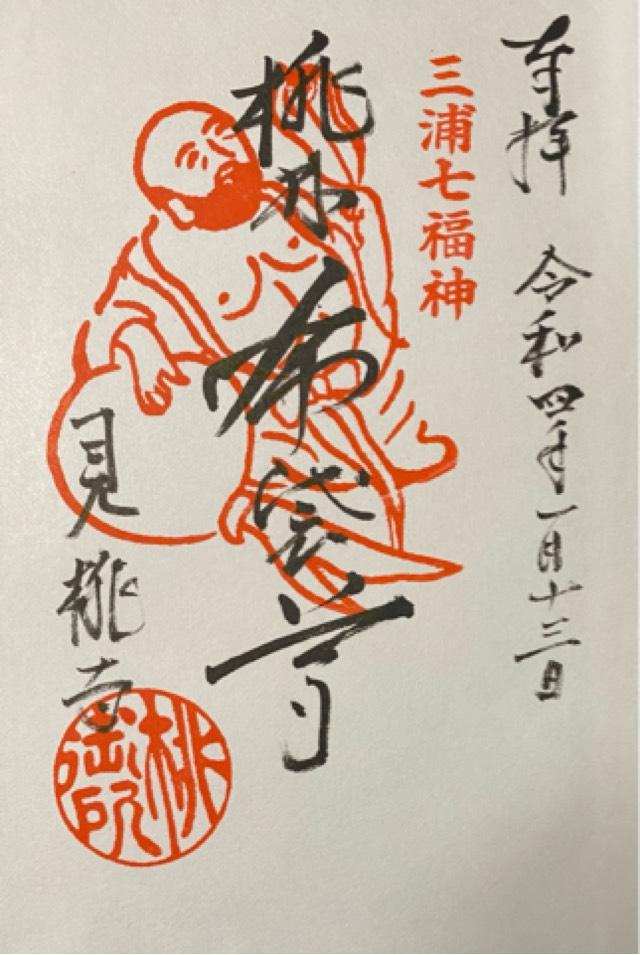 奉拝 令和四年一月十三日
三浦七福神
桃林布袋尊
見桃寺